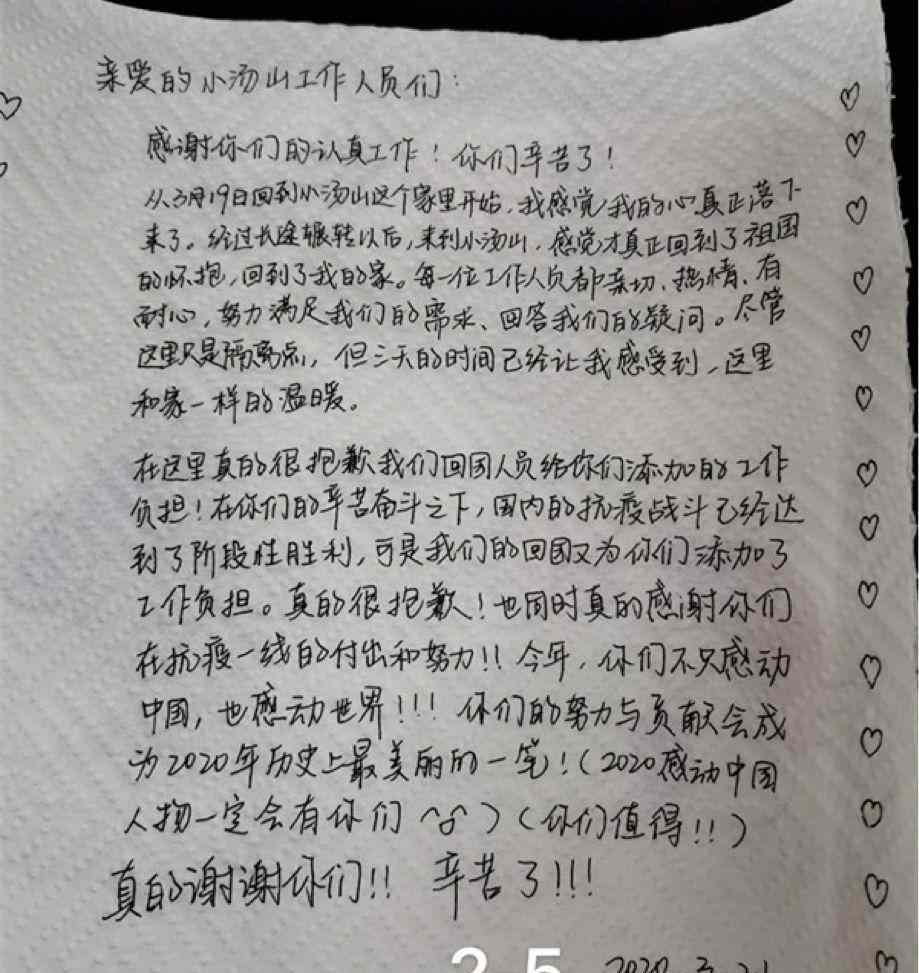 亲爱的小汤山工作人员们:
感谢你们的认真工作!你们辛苦了!
从3月19日回到小汤山这个家里开始,我感觉我的心真正落下
来了。经过长途辗转以后,来到小汤山,感觉才真正回到了祖国
的怀抱,回到了我的家。每一位工作人员都亲切、热情、有
耐心,努力满足我们的需求、回答我们的疑问。尽管
这里只是隔离点,但三天的时间已经让我感受到,这里
和家一样的温暖。
在这里真的很抱歉我们回国人员给你们添加的工作
负担!在你们的辛苦奋斗之下,国内的抗疫战斗已经达
到了阶段性胜利,可是我们的回国又为你们添加了
工作负担。真的很抱歉!也同时真的感谢你们
在抗疫一线的付出和努力!!今年,你们不只感动
中国,也感动世界!!!你们的努力与贡献会成
为2020年历史上最美丽的一笔!(2020感动中国
人物一定会有你们)(你们值得!!)
真的谢谢你们!! 辛苦了!!!
25 2020.3.21